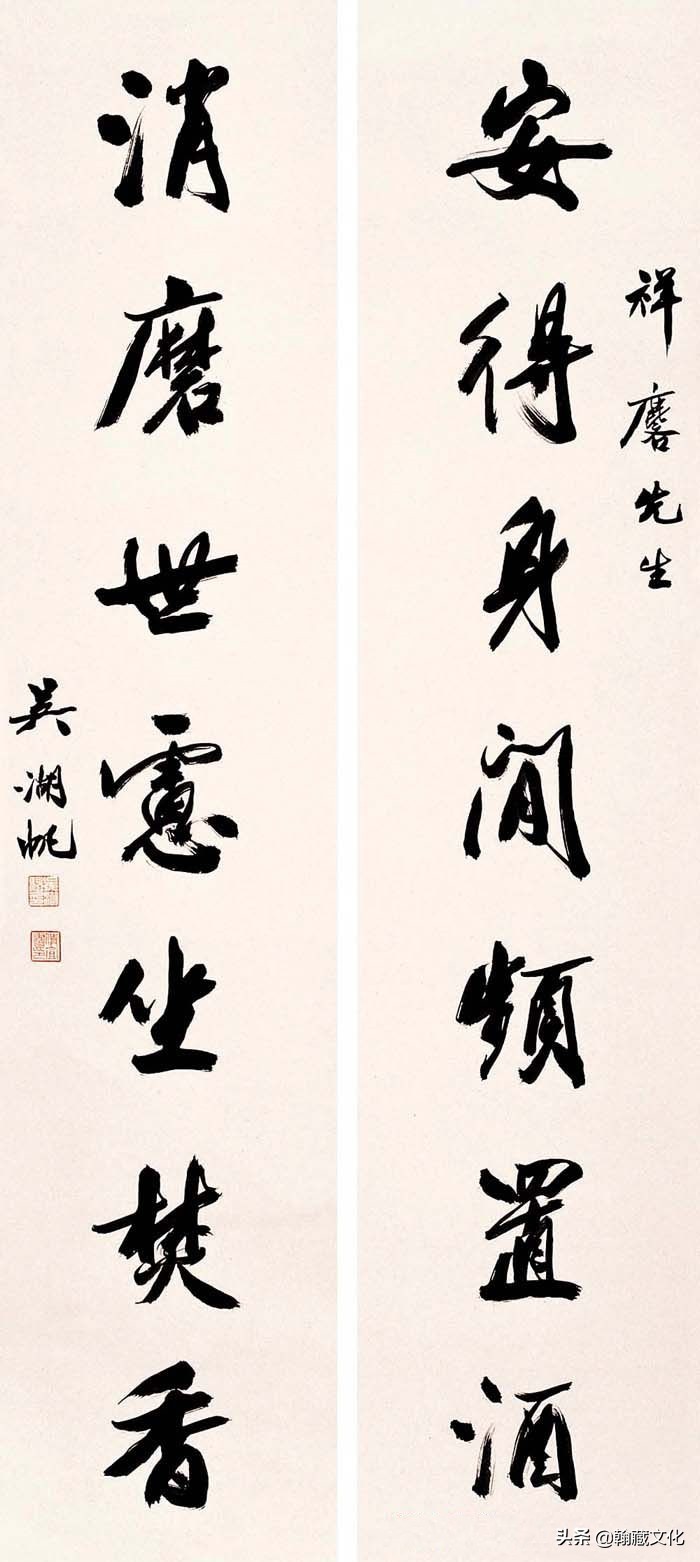 祥麐先生
安得身閒頻置酒
消磨世慮坐焚香
吳湖帆
头条 @翰藏文化